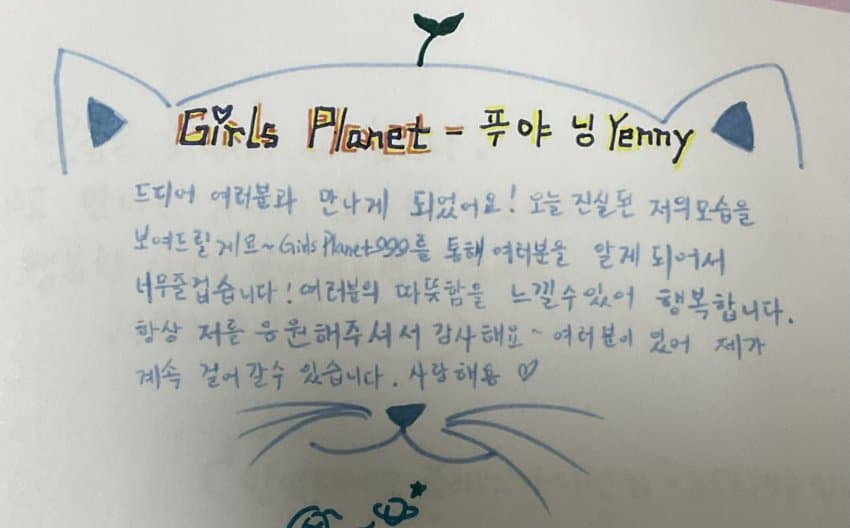 Girls Planet - 푸야닝 Yenny
드디어 여러분과 만나게 되었어요! 오늘 진실된 저의모습을
보여드릴게요~Girls Planet999를 통해 여러분을 알게 되어서
너무즐겁습니다! 여러분의 따뜻함을 느낄수있어 행복합니다.
항상 저를 응원해주셔서 감사해요~ 여러분이 있어 제가
계속 걸어갈수 있습니다. 사랑해용 ♡